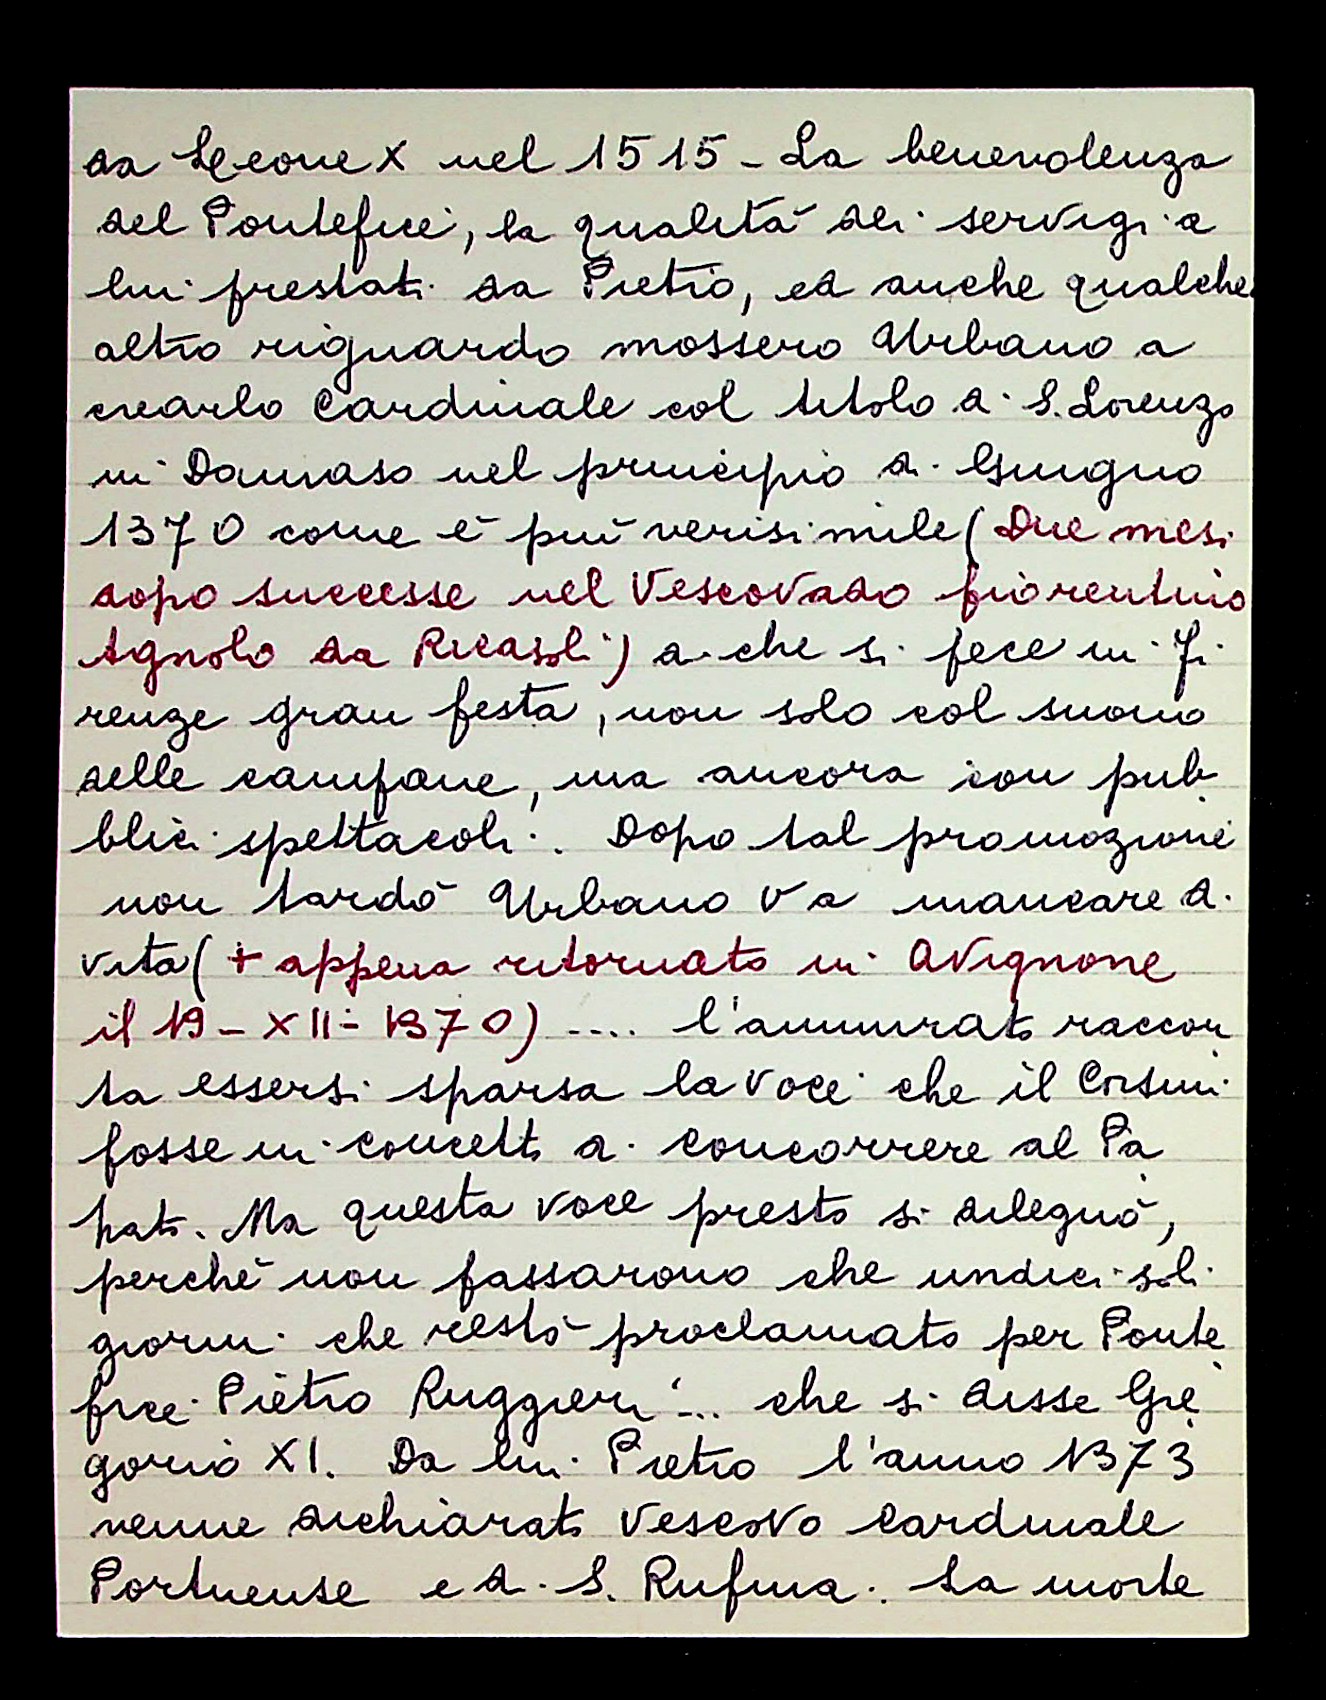 da Leone X nel 1515 - La benevolenza
del Pontefice, la qualità dei servigi a
lui prestati da Pietro, ed anche qualche
altro riguardo mossero Urbano a
crearlo Cardinale col titolo di S. Lorenzo
in Damaso nel principio di Giugno
1370 come è più verisimile (Due mesi
dopo successe nel Vescovado fiorentino
Agnolo da Ricasoli) di che si fece in Fi
renze gran festa, non solo col suono
delle campane, ma ancora con pub
blici spettacoli. Dopo tal promozione
non tardò Urbano V a mancare di
vita (+ appena ritornato in Avignone
il 19 - XII - 1370) .... l'ammirato raccon
ta essersi sparsa la voce che il Corsini
fosse in concetto di concorrere al Pa
pato. Ma questa voce presto si dileguò,
perchè non passarono che undici soli
giorni che restò proclamato per Ponte
fice Pietro Ruggieri ... che si disse Gre
gorio XI. Da lui Pietro l'anno 1373
venne dichiarato Vescovo Cardinale
Portuense e di S. Rufina. La morte